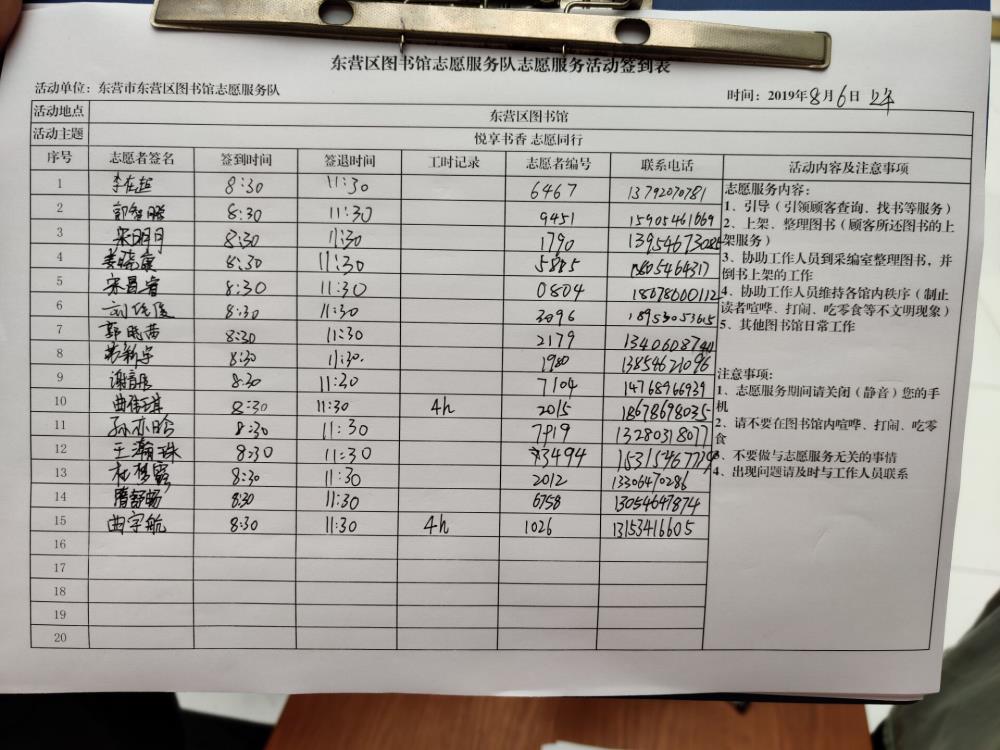 东营区图书馆志愿服务队志愿服务活动签到表
活动单位：东营市东营区图书馆志愿服务队 时间：2019年8月6日
活动地点 东营区图书馆
活动主题 悦享书香 志愿同行
序号 志愿者签名 签到时间 签退时间 工时记录 志愿者编号 联系电话 活动内容及注意事项
1 8:30 11:30 6467 13792070781
2 郭智鹏 8:30 11:30 9451 15905461669
3 宋明月 8:30 11:30 1790
4 姜晓康 8:30 11:30
5 宋昌睿 8:30 11:30 0804 18678000112
6 8:30 11:30 3096 18953053615
7 郭晓茜 8:30 11:30 2179
8 8:30 11:30. 1980 13854621096
9 8:30 11:30 7104 14768966939
10 曲伟琪 8:30 11:30 4h 2015 18678698035
11 孙亦晗 8:30 11:30 7919 13280318077
12 王瀚珠 8:30 11:30 3494
13 杜梦露 8:30 11:30 2012 13306470286
14 隋舒畅 8:30 11:30 6758 13054647874
15 曲宇航 8:30 11:30 4h 1026 13153416605
16
17
18
19
20
志愿服务内容：
1、引导（引领顾客查询、找书等服务）
2、上架、整理图书（顾客所还图书的上
架服务）
3、协助工作人员到采编室整理图书，并
倒书上架的工作
4、协助工作人员维持各馆内秩序（制止
读者喧哗、打闹、吃零食等不文明现象）
5、其他图书馆日常工作
注意事项：
1、志愿服务期间请关闭（静音）您的手
机
2、请不要在图书馆内喧哗、打闹、吃零
食
3、不要做与志愿服务无关的事情
4、出现问题请及时与工作人员联系